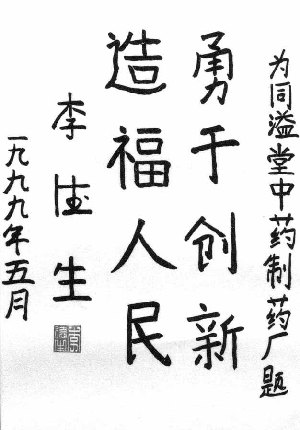 为同溢堂中药制药厂题
勇于创新
造福人民
李法生
一九九九年五月